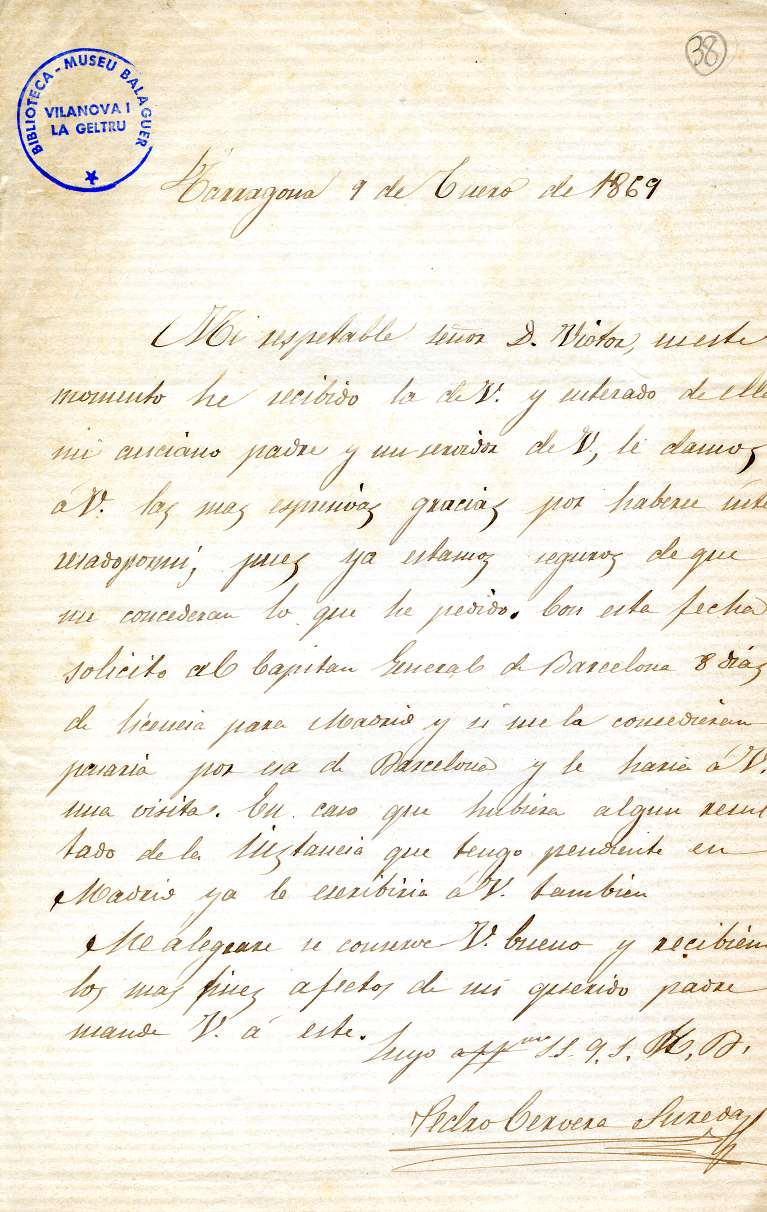 38
BIBLIOTECA - MUSEU BALAGUER
VILANOVA I
LA GELTRU
Tarragona 9 de Enero de 1869
Mi respetable señor D. Victor, en este
momento he recibido la de V. y enterado de ella
mi anciano padre y un servidor de V, le damos
á V. las mas espresivas gracias por haberse inte
resado por mi, pues ya estamos seguros de que
me concederan lo que he pedido. Con esta fecha
solicito al Capitan General de Barcelona 8 dias
de licencia para Madrid y si me la concedieran
pasaria por esa de Barcelona y le haria á V.
una visita. En caso que hubiera algun resul
tado de la Instancia que tengo pendiente en
Madrid ya le escribiria á V. tambien
Me alegrare se conserve V. bueno y recibien
los mas fines afectos de mi querido padre
mande V. á este.
Suyo affmo S.S. q. s. M. B.
Pedro Cervera Sureda